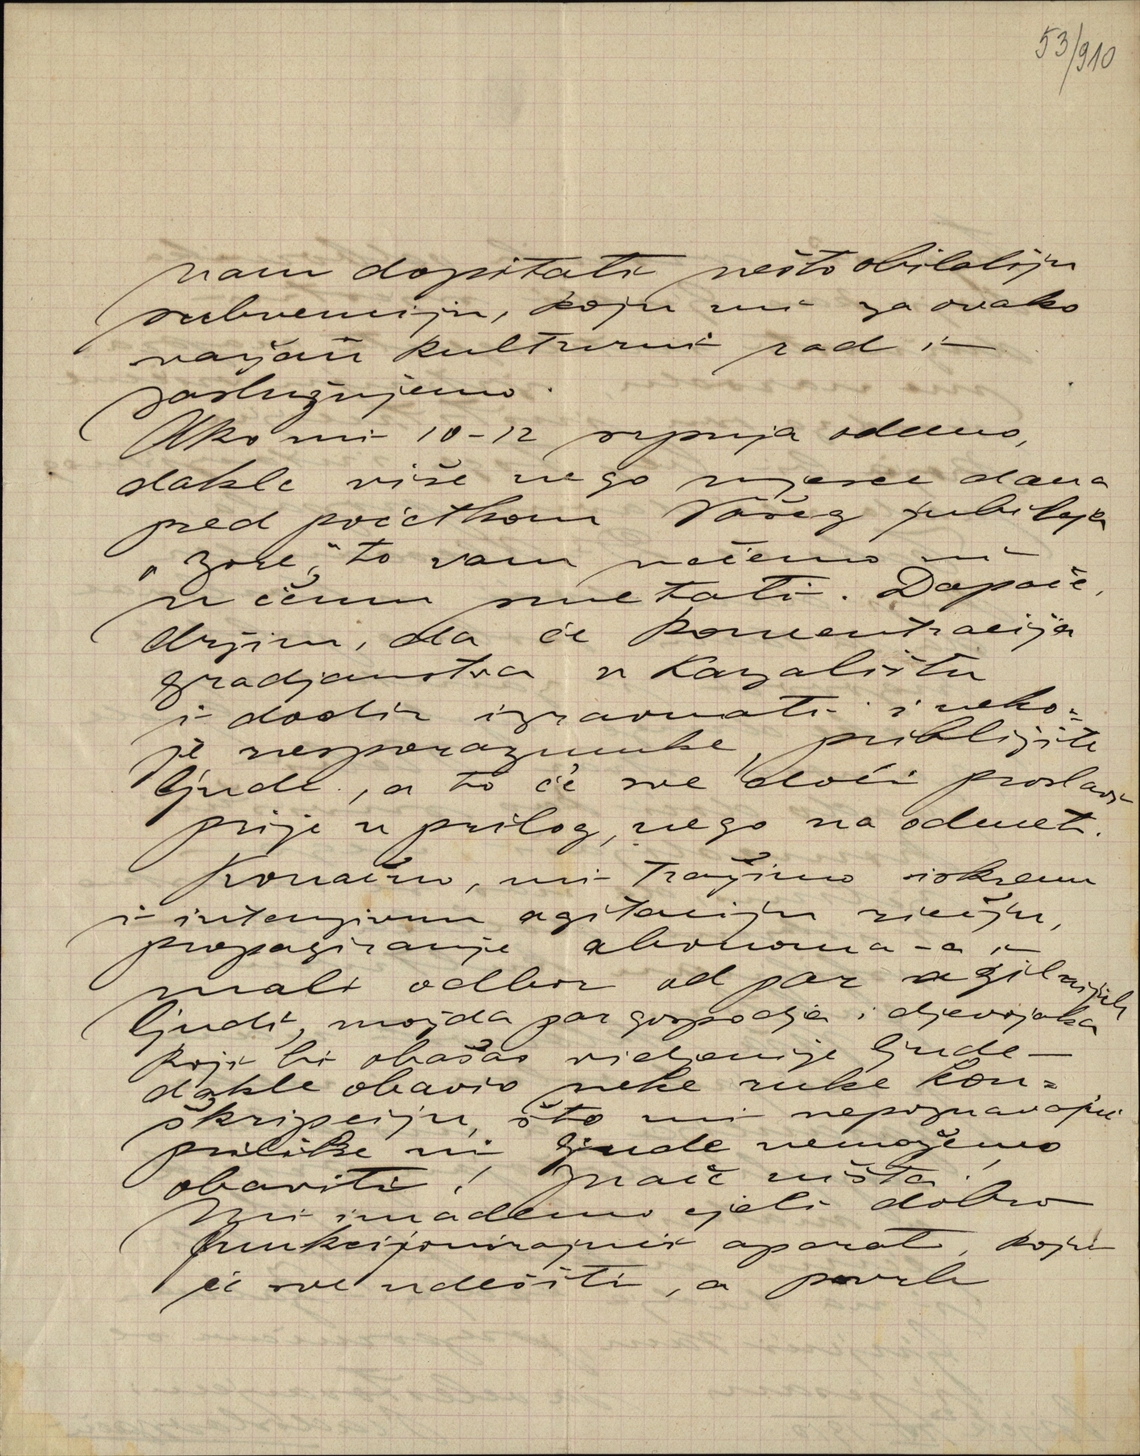 53/910
nam dopitati nešto obilatiju
subvenciju, koju mi za ovako
važan kulturni rad i
zaslužujemo.
Ako mi 10-12 srpnja odemo,
dakle više nego mjesec dana
pred početkom Vašeg jubileja
„Zore", to vam nećemo ni
u čemu smetati. Dapače,
držim, da će koncentracija
gradjanstva u kazalištu
i dodir izravnati i neko=
je nesporazumke, približiti
ljude, a to će sve doći proslavi
prije u prilog, nego na odmet.
Konačno, mi tražimo iskrenu
i intenzivnu agitaciju riečju,
propagiranje abonoma-a i
mali odbor od par agilnijih
ljudi, možda par gospodja i djevojaka
koji bi obašao vidjenije ljude –
dakle obavio neke ruke kon=
škripciju, što mi nepoznavajući
prilike ni ljude nemožemo
obaviti! Inače ništa.
Mi imademo cjeli dobro
funkcijonirajući aparat, koji
će sve udesiti, a povrh